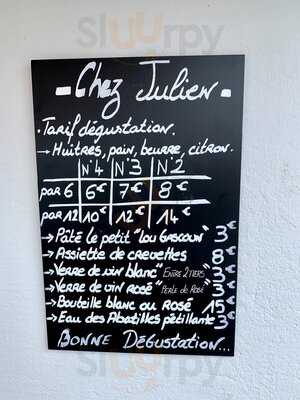 Sluurpy
- Chez Julien -
• Tarif dégustation.
→ Huîtres, pain, beurre, citron.
N°4 N°3 N°2
par 6 6€ 7€ 8€
par 12 10€ 12€ 14€
→ Pâté le petit "LOU GASCOUN" 3€
→ Assiette de crevettes 8€
→ Verre de vin blanc "ENTRE 2 MERS" 3€
→ Verre de vin rosé "PERLE de ROSÉ" 3€
→ Bouteille blanc ou ROSÉ 15€
→ Eau des Abatilles pétillante 3€
BONNE Dégustation...
Sluurpy